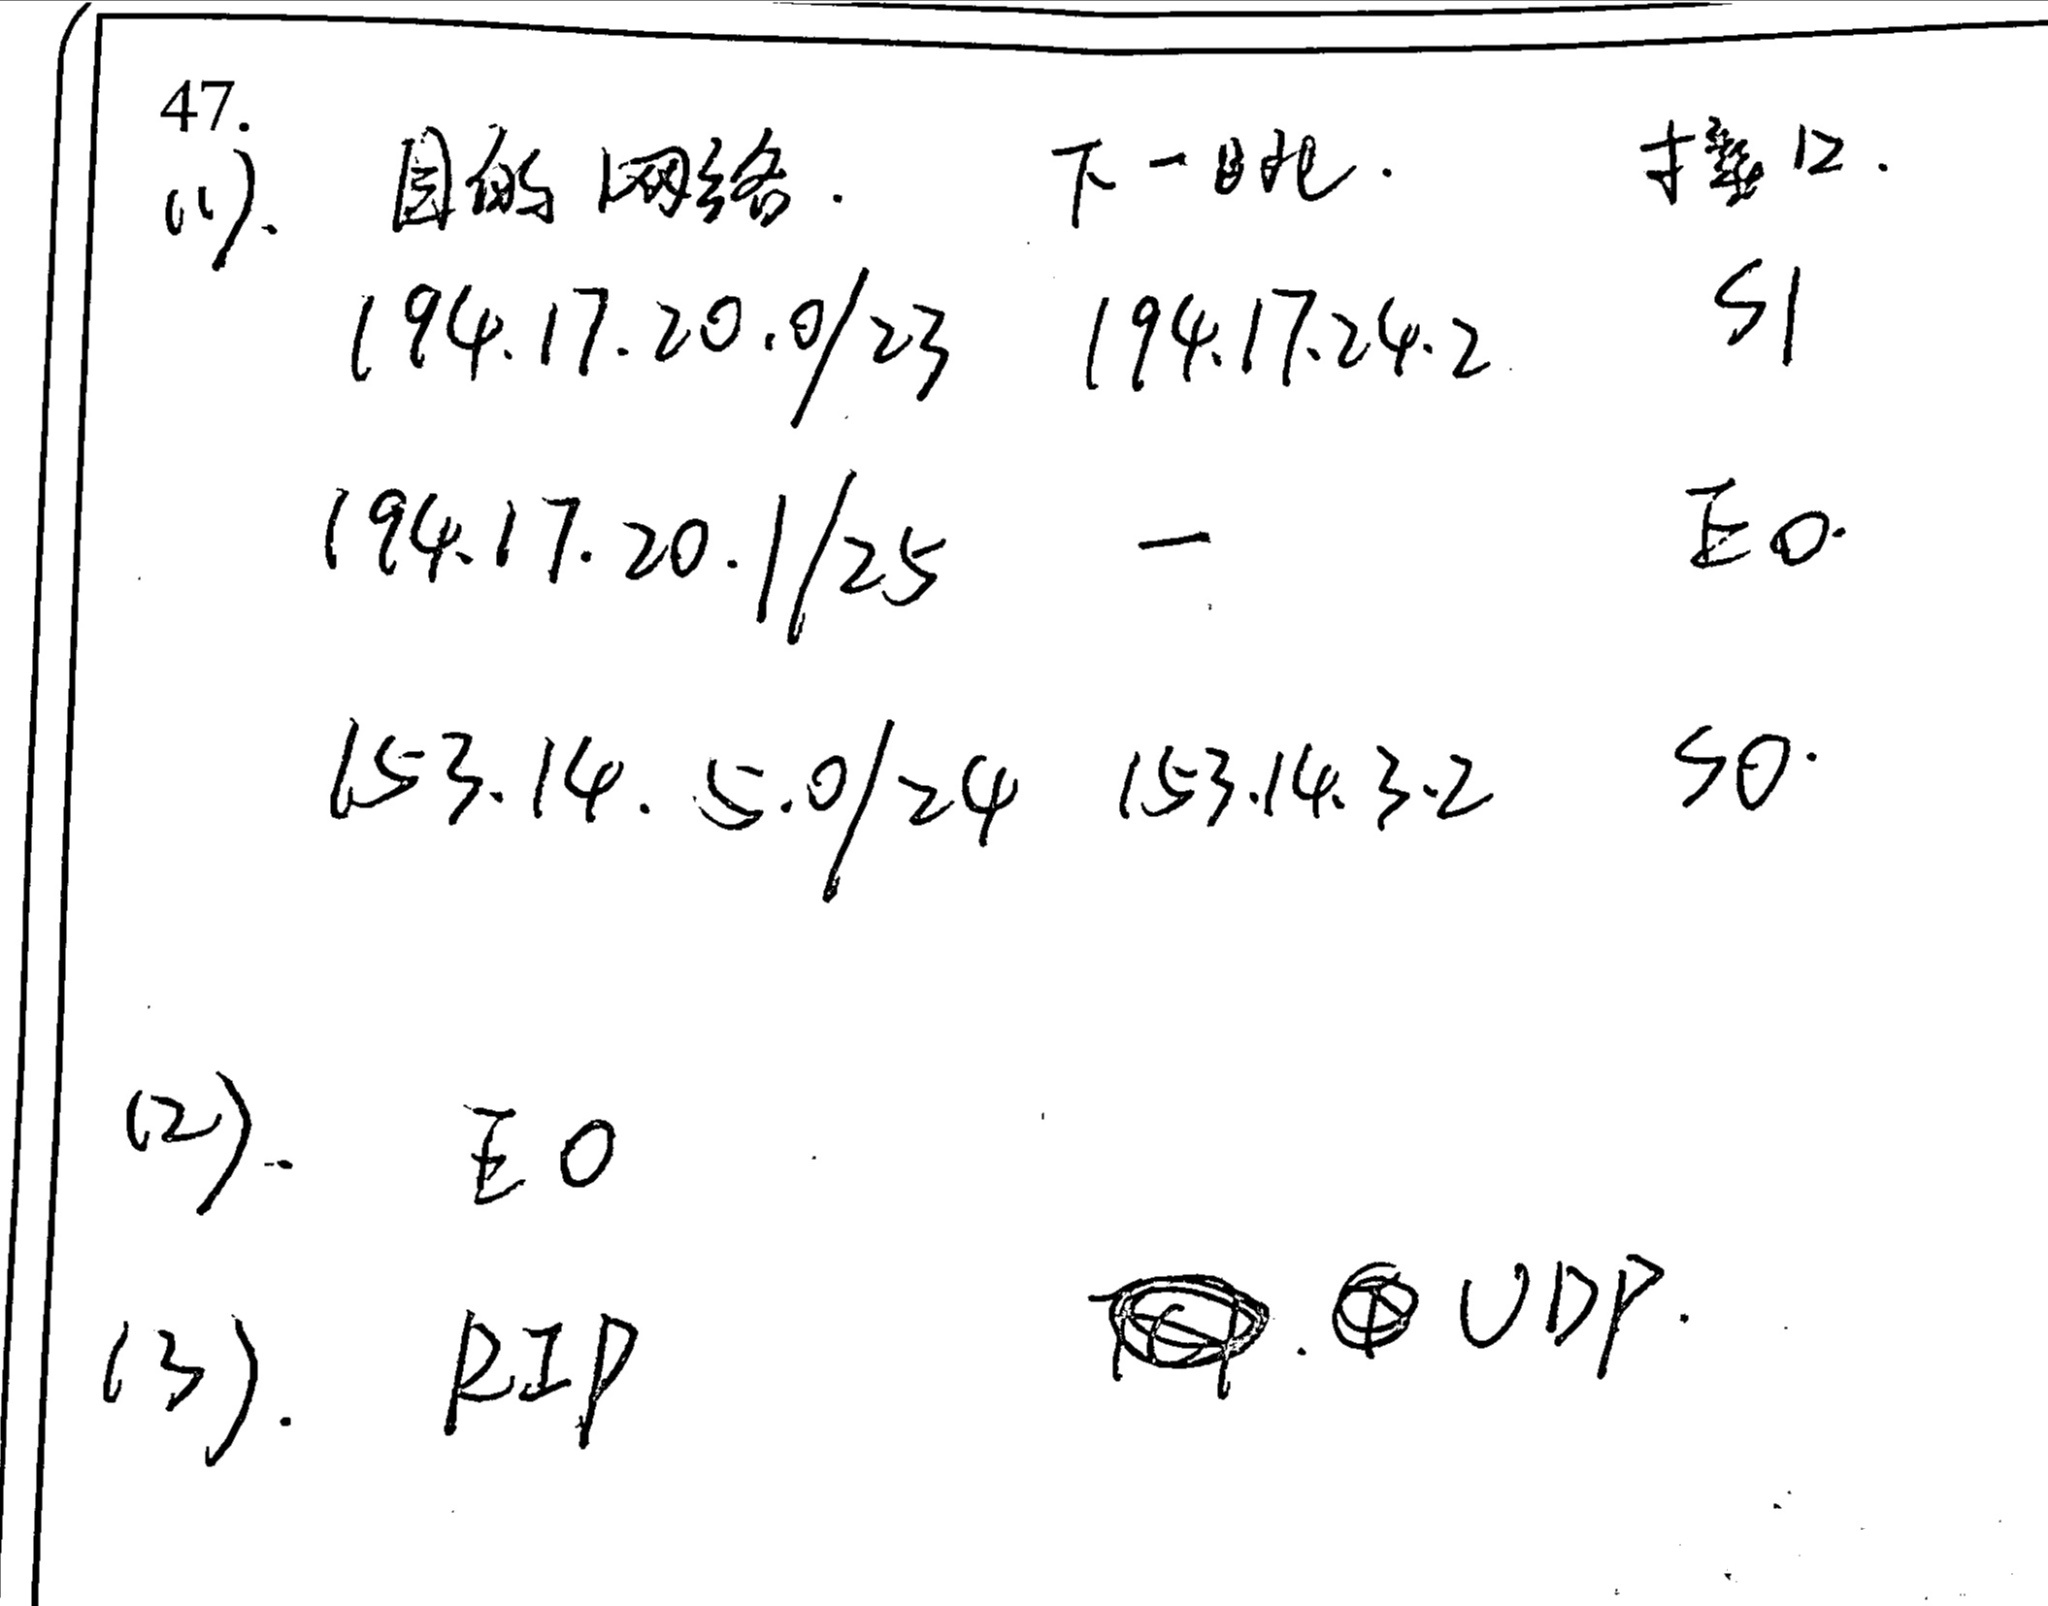 47.
(1). 目的网络. 下一跳. 接口.
194.17.20.0/23 194.17.24.2 S1
194.17.20.1/25 — E0.
153.14.5.0/24 153.14.3.2 S0.
(2). E0
(3). RIP UDP.